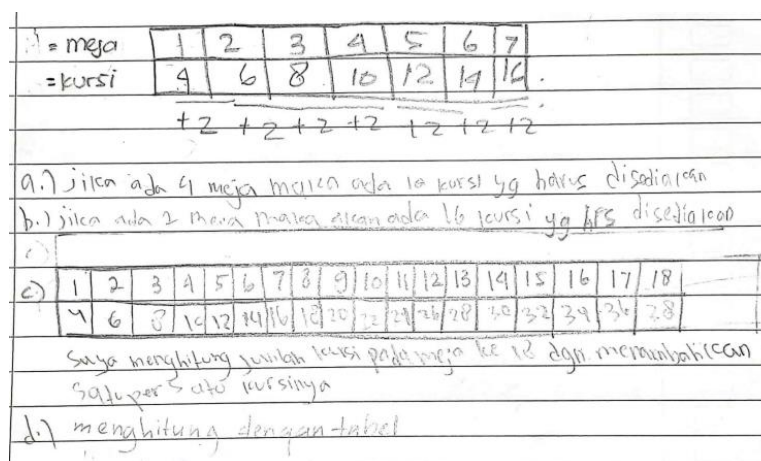 = meja 1 2 3 4 5 6 7
= kursi 4 6 8 10 12 14 16
+2 +2 +2 +2 +2 +2 +2
a.) jika ada 4 meja maka ada 10 kursi yg harus disediakan
b.) jika ada 7 meja maka akan ada 16 kursi yg hrs disediakan
c)
c) 1 2 3 4 5 6 7 8 9 10 11 12 13 14 15 16 17 18
4 6 8 10 12 14 16 18 20 22 24 26 28 30 32 34 36 38
saya menghitung jumlah kursi pada meja ke 18 dgn menambahkan
satu per satu kursinya
d.) menghitung dengan tabel